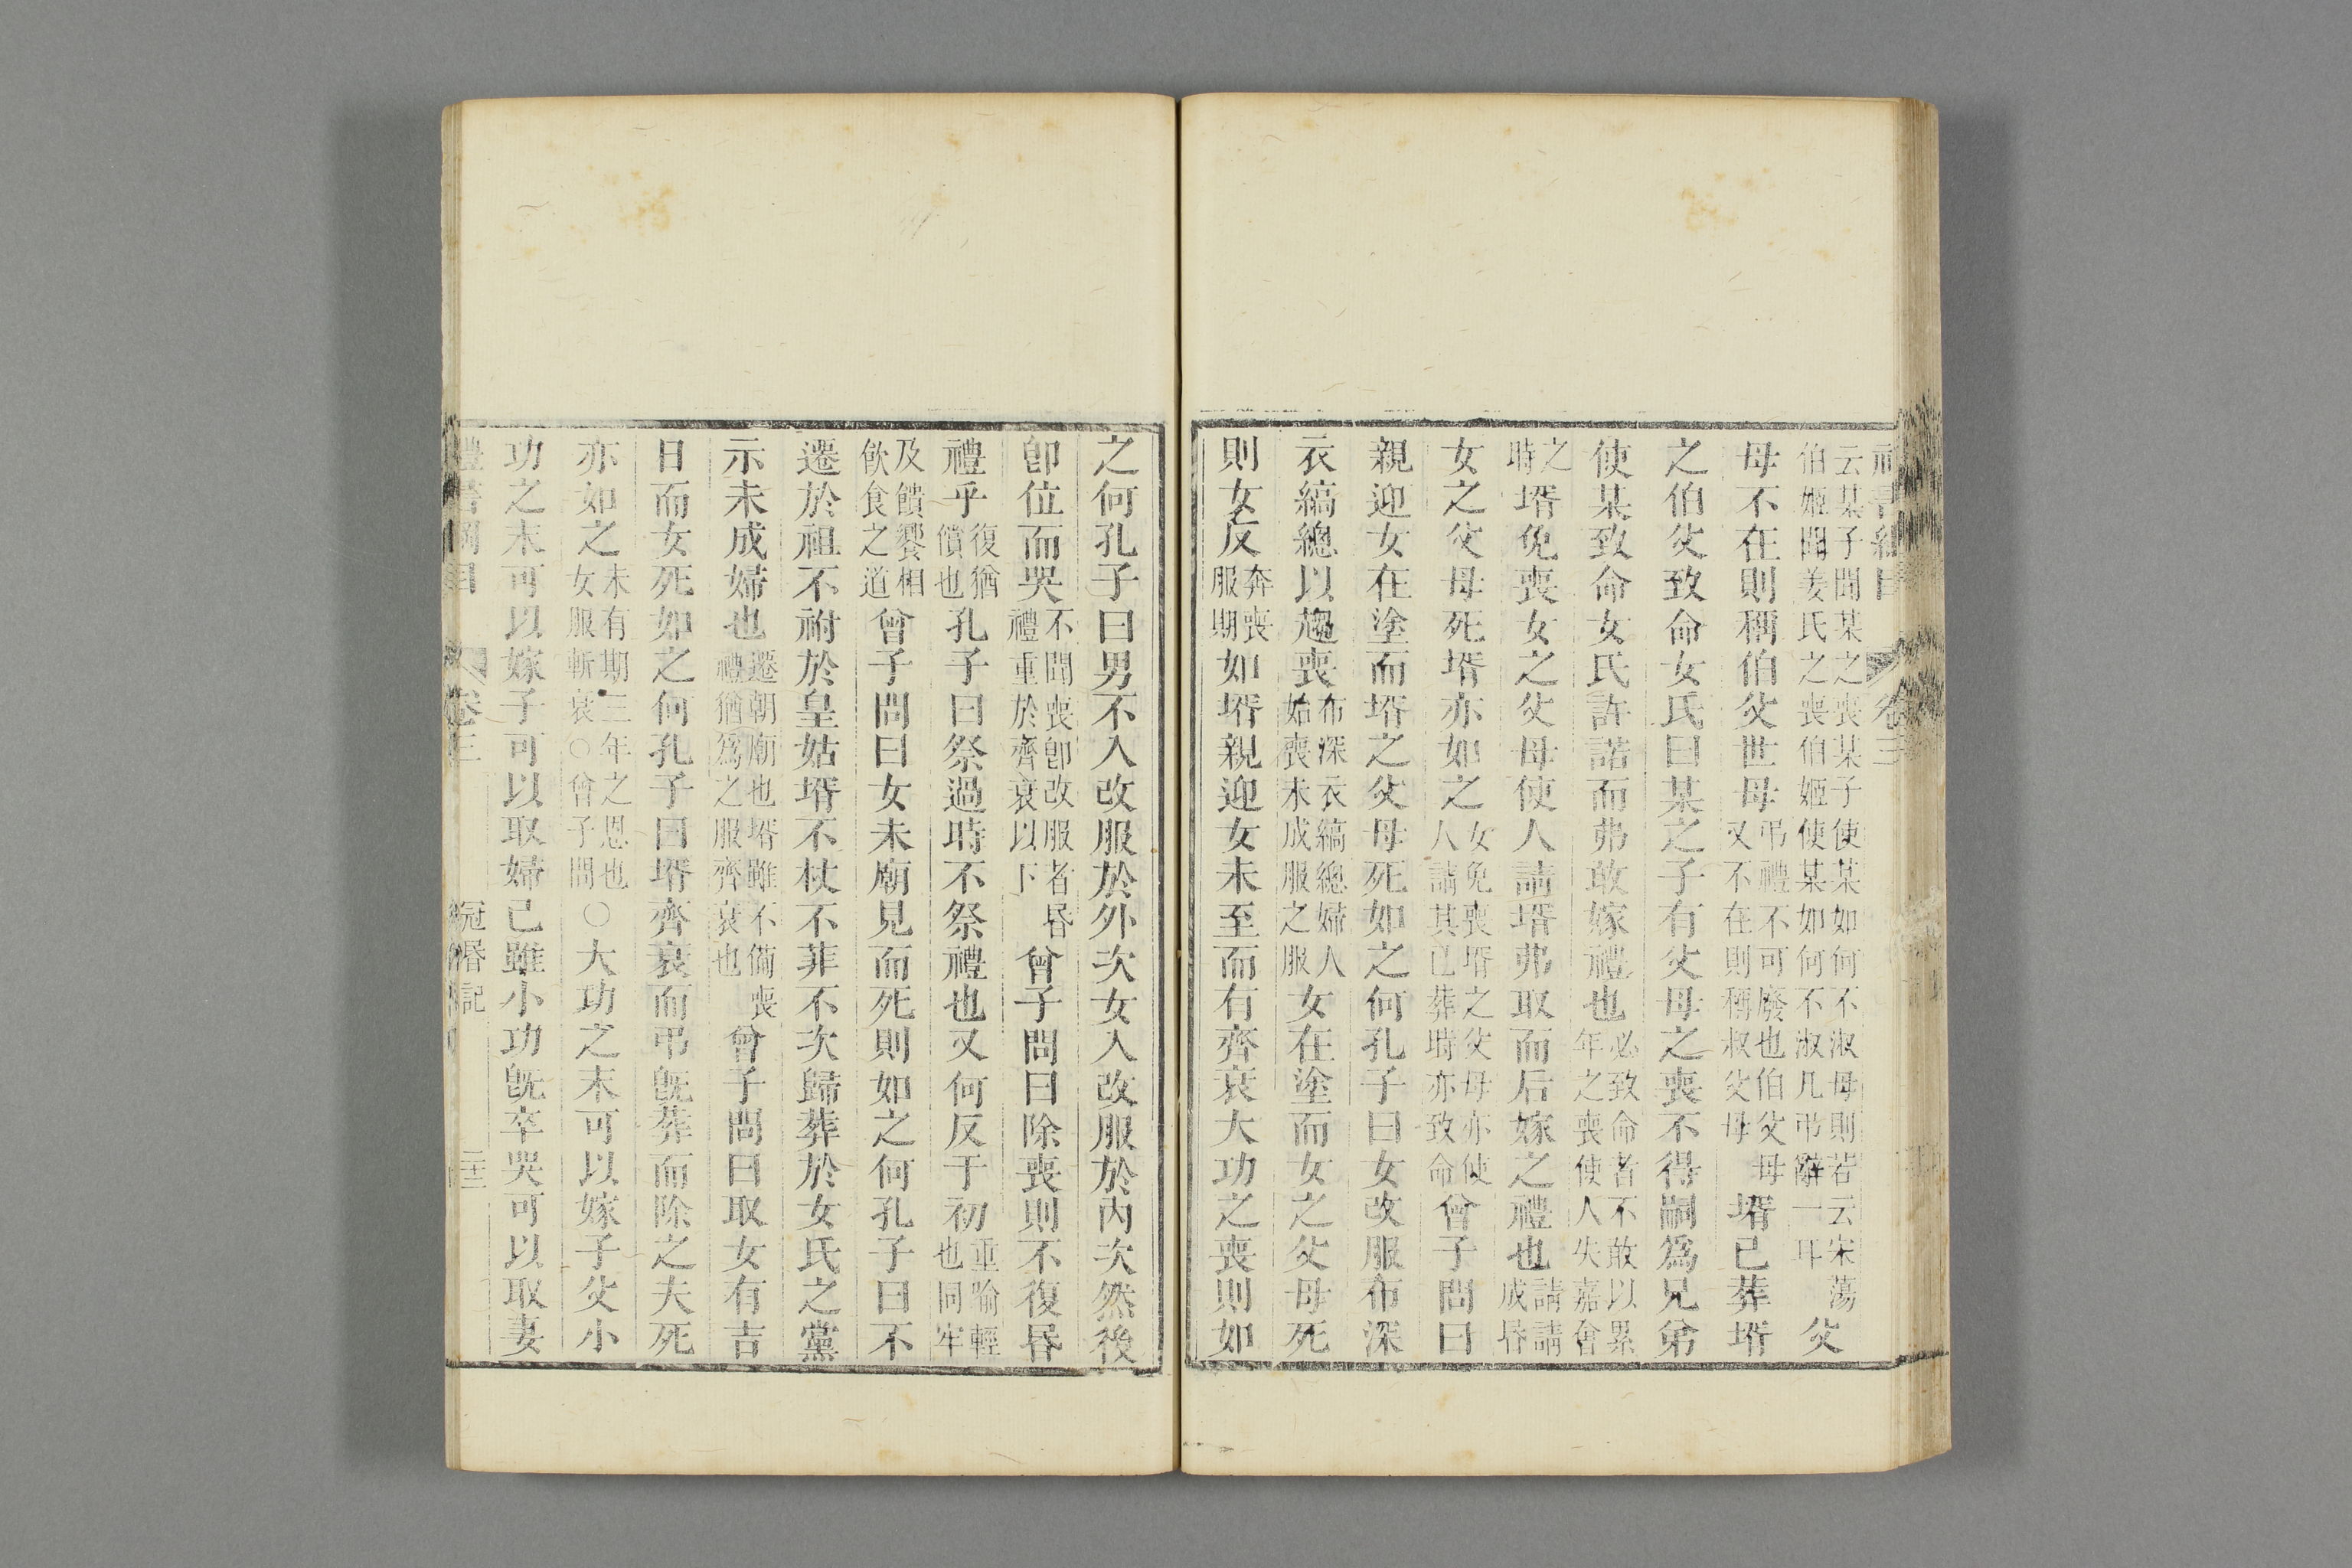 云某子聞某之喪某子使某如何不淑母則若云宋蕩
伯姬聞姜氏之喪伯姬使某如何不淑凡弔辭一耳
父
母不在則稱伯父世母
弔禮不可廢也伯父母
又不在則稱叔父母
壻已葬壻
之伯父致命女氏曰某之子有父母之喪不得嗣爲兄弟
使某致命女氏許諾而弗敢嫁禮也
必致命者不敢以累
年之喪使人失嘉會
之
時
壻免喪女之父母使人請壻弗取而后嫁之禮也
請請
成昏
女之父母死壻亦如之
女免喪壻之父母亦使
人請其已葬時亦致命
曾子問曰
親迎女在塗而壻之父母死如之何孔子曰女改服布深
衣縞總以趨喪
布深衣縞總婦人
始喪未成服之服
女在塗而女之父母死
則女反
奔喪
服期
如壻親迎女未至而有齊衰大功之喪則如
之何孔子曰男不入改服於外次女入改服於內次然後
卽位而哭
不聞喪卽改服者昏
禮重於齊衰以下
曾子問曰除喪則不復昏
禮乎
復猶
償也
孔子曰祭過時不祭禮也又何反于初
重喻輕
也同牢
及饋饗相
飲食之道
曾子問曰女未廟見而死則如之何孔子曰不
遷於祖不祔於皇姑壻不杖不菲不次歸葬於女氏之黨
示未成婦也
遷朝廟也壻雖不備喪
禮猶爲之服齊衰也
曾子問曰取女有吉
日而女死如之何孔子曰壻齊衰而弔旣葬而除之夫死
亦如之
未有期三年之恩也
女服斬衰○曾子問
○大功之末可以嫁子父小
功之末可以嫁子可以取婦己雖小功旣卒哭可以取妻
禮書綱目
卷三
冠昏記
二十三